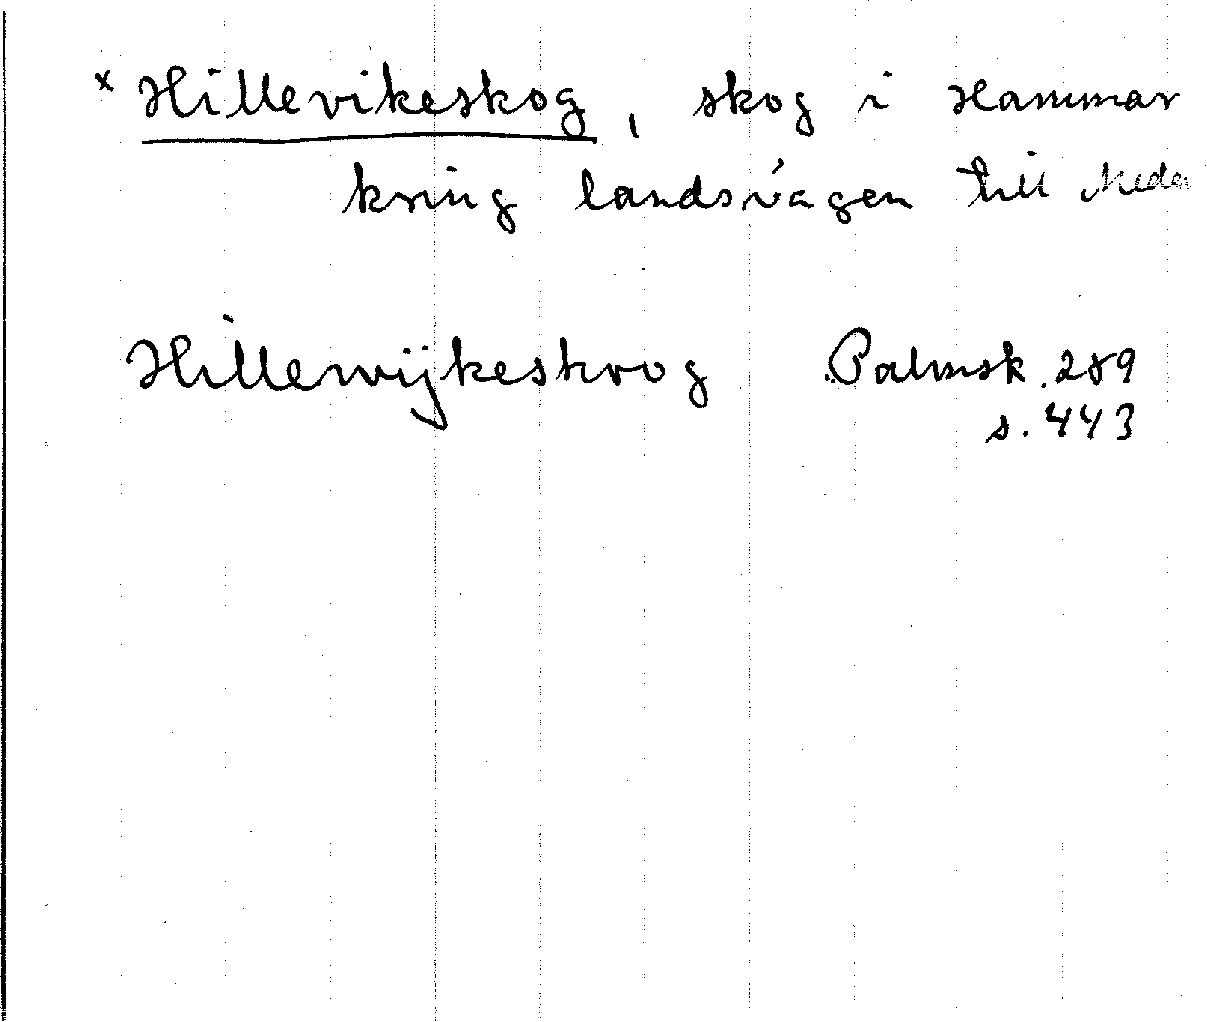 × Hillevikeskog, skog i Hammar
kring landsvägen till
Hillewijkeskoog Palmsk. 289
s. 443